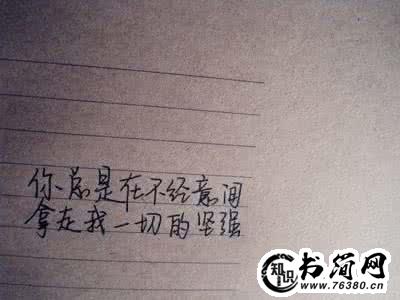 你总是在不经意间
拿走我一切的坚强
知识
书简网
www.76380.cn